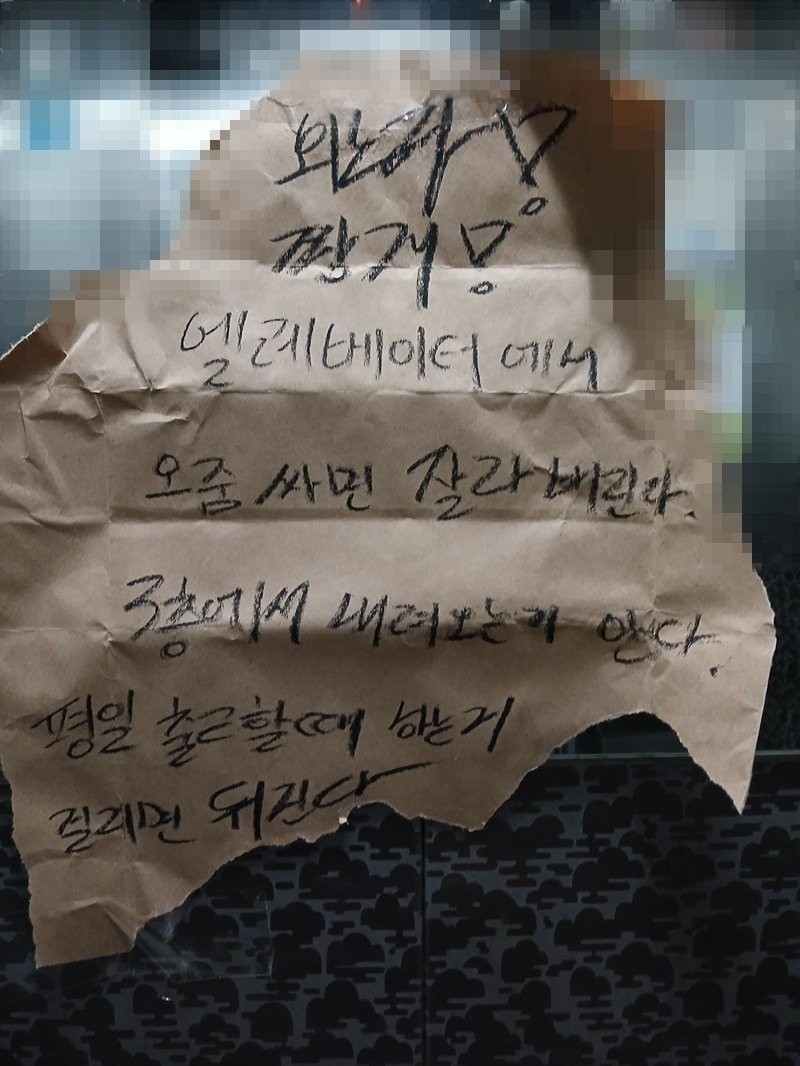 외노자!
짱개!
엘레베이터에서
오줌 싸면 잘라 버린다.
3층에서 내려오는거 안다.
평일 출근할때 하는거
걸리면 뒤진다